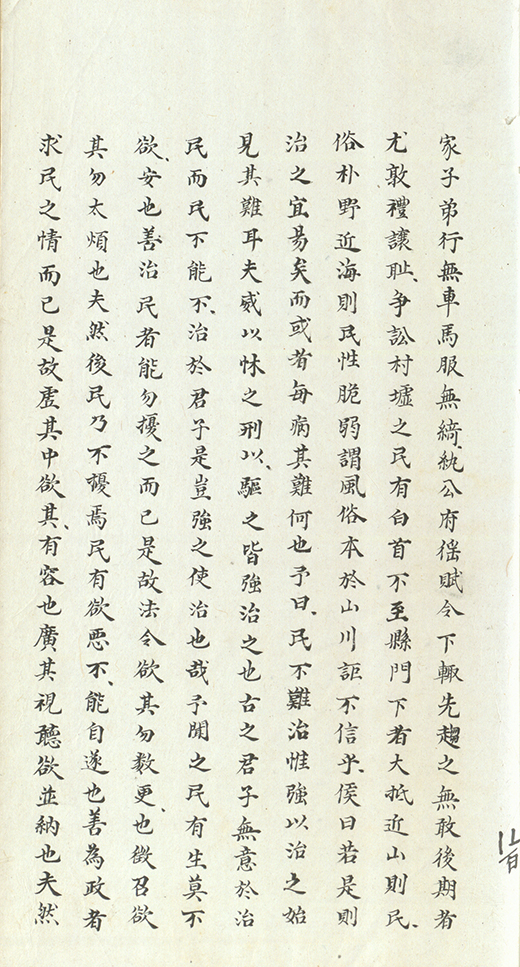 家子弟行無車馬服無綺紈公府徭賦令下輙先趨之無敢後期者
尤敦禮讓耻爭訟村墟之民有白首不至縣門下者大抵近山則民
俗朴野近海則民性脆弱謂風俗本於山川詎不信乎侯曰若是則
治之宜易矣而或者每病其難何也予曰民不難治惟強以治之始
見其難耳夫威以怵之刑以驅之皆強治之也古之君子無意於治
民而民不能不治於君子是豈強之使治也哉予聞之民有生莫不
欲安也善治民者能勿擾之而已是故法令欲其勿数更也徵召欲
其勿太煩也夫然後民乃不擾焉民有欲惡不能自遂也善為政者
求民之情而已是故虛其中欲其有容也廣其視聽欲並納也夫然